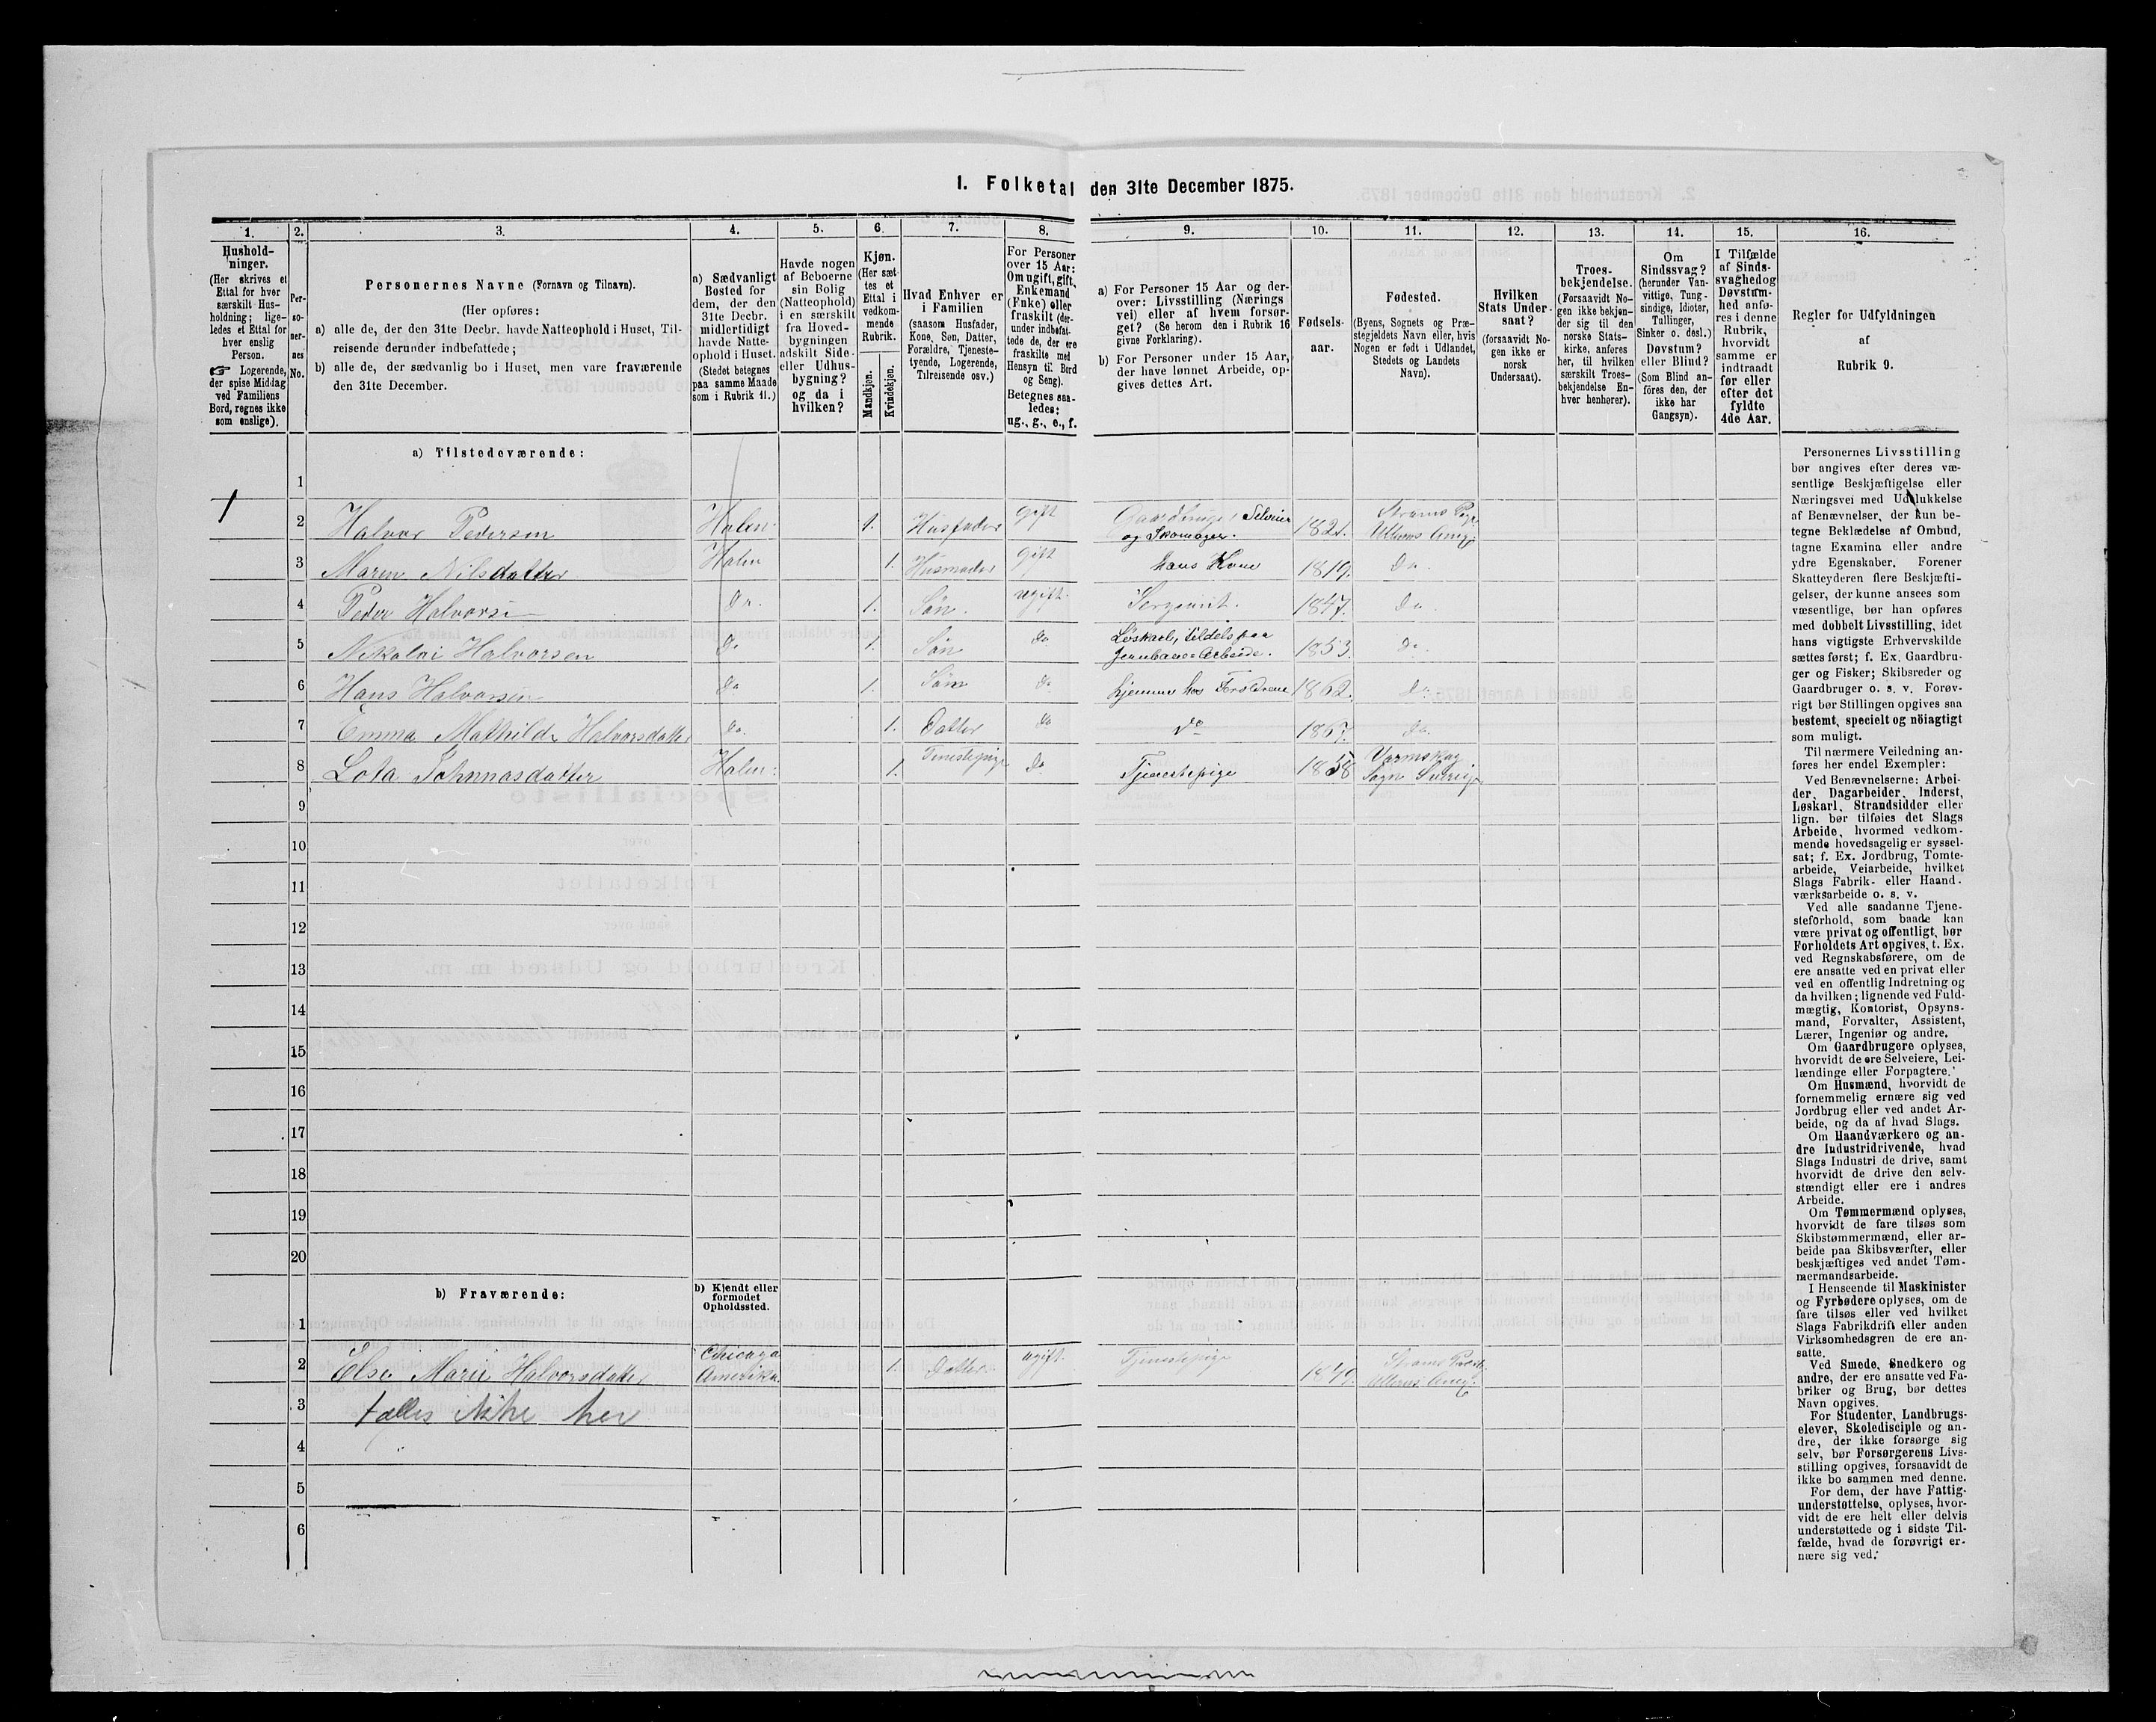 1. Folketal den 31te December 1875.
1. 2. 3. 4. 5. 6. 7. 8. 9. 10. 11. 12. 13. 14. 15. 16.
Hushold-
ninger.
(Her skrives et
Ettal for hver
særskilt Hus-
holdning; lige-
ledes et Ettal for
hver enslig
Person.
☞ Logerende,
der spise Middag
ved Familiens
Bord, regnes ikke
som enslige).
Per-
so-
ner-
nes
No.
Personernes Navne (Fornavn og Tilnavn).
(Her opføres:
a) alle de, der den 31te Decbr. havde Natteophold i Huset, Til-
reisende derunder indbefattede;
b) alle de, der sædvanlig bo i Huset, men vare fraværende
den 31te December.
a) Sædvanligt
Bosted for
dem, der den
31te Decbr.
midlertidigt
havde Natte-
ophold i Huset.
(Stedet betegnes
paa samme Maade
som i Rubrik 11.)
Havde nogen
af Beboerne
sin Bolig
(Natteophold)
i en særskilt
fra Hoved-
bygningen
adskilt Side-
eller Udhus-
bygning?
og da i
hvilken?
Kjøn.
(Her sæt-
tes et
Ettal i
vedkom-
mende
Rubrik.
Mandkjøn.
Kvindekjøn.
Hvad Enhver er
i Familien
(saasom Husfader,
Kone, Søn, Datter,
Forældre, Tjeneste-
tyende, Logerende,
Tilreisende osv.)
For Personer
over 15 Aar:
Om ugift, gift,
Enkemand
(Enke) eller
fraskilt (der-
under indbefat-
tede de, der ere
fraskilte med
Hensyn til Bord
og Seng).
Betegnes saa-
ledes:
ug., g., e., f.
a) For Personer 15 Aar og der-
over: Livsstilling (Nærings
vei) eller af hvem forsør-
get? (Se herom den i Rubrik 16
givne Forklaring).
b) For Personer under 15 Aar,
der have lønnet Arbeide, op-
gives dettes Art.
Fødsels-
aar.
Fødested.
(Byens, Sognets og Præ-
stegjeldets Navn eller, hvis
Nogen er født i Udlandet,
Stedets og Landets
Navn).
Hvilken
Stats Under-
saat?
(forsaavidt No-
gen ikke er
norsk
Undersaat).
Troes-
bekjendelse.
(Forsaavidt No-
gen ikke bekjen-
der sig til den
norske Stats-
kirke, anføres
her, til hvilken
særskilt Troes-
bekjendelse En-
hver henhører).
Om
Sindssvag?
(herunder Van-
vittige, Tung-
sindige, Idioter,
Tullinger,
Sinker o. desl.)
Døvstum?
eller Blind?
(Som Blind an-
føres den, der
ikke har
Gangsyn).
I Tilfælde
af Sinds-
svaghed og
Døvstum-
hed anfø-
res i denne
Rubrik,
hvorvidt
samme er
indtraadt
før eller
efter det
fyldte
4de Aar.
Regler for Udfyldningen
af
Rubrik 9.
a) Tilstedeværende:
1
1 2 Halvor Pedersen Holen: 1. Husfader Gift Gaardbruger Selveier og Skomager. 1821. Strøms Præst Ullerns Ang.
3 Maren Nilsdatter Holen 1. Husmoder Gift hans Kone 1819. Do.
4 Peder Halvorsen Do. 1. Søn. ugift. 1847. Do.
5 Nikolai Halvorsen Do 1. Søn do Løskarl, tildels paa Jernbane=Arbeide. 1853. Do.
6 Hans Halvorsen Do 1. Søn do hjemme hos Forældrene 1862. Do.
7 Emma Mathilde Halvorsdatter Do. 1. Datter do do 1867. Do.
8 Lota Johnnasdatter Holen: 1. Tjenestepige Do Tjenestepige 1858 Sogn Sverige
9
10
11
12
13
14
15
16
17
18
19
20
b) Fraværende:
b) Kjendt eller
formodet
Opholdssted.
1
2 Else Marie Halvorsdatter Chicago Amerika. 1. Datter ugift. Tjenestepige 1849. Strøms Præst Ullerns
3 tælles ikke her
4
5
6
Personernes Livsstilling
bør angives efter deres væ-
sentlige Beskjæftigelse eller
Næringsvei med Udelukkelse
af Benævnelser, der kun be-
tegne Beklædelse af Ombud,
tagne Examina eller andre
ydre Egenskaber. Forener
Skatteyderen flere Beskjæfti-
gelser, der kunne ansees som
væsentlige, bør han opføres
med dobbelt Livsstilling, idet
hans vigtigste Erhvervskilde
sættes først; f. Ex. Gaardbru-
ger og Fisker; Skibsreder og
Gaardbruger o. s. v. Forøv-
rigt bør Stillingen opgives saa
bestemt, specielt og nöiagtigt
som muligt.
Til nærmere Veiledning an-
føres her endel Exempler:
Ved Benævnelserne: Arbei-
der, Dagarbeider, Inderst,
Løskarl, Strandsidder eller
lign. bør tilføies det Slags
Arbeide, hvormed vedkom-
mende hovedsagelig er syssel-
sat; f. Ex. Jordbrug, Tomte-
arbeide, Veiarbeide, hvilket
Slags Fabrik- eller Haand-
værksarbeide o. s. v.
Ved alle saadanne Tjene-
steforhold, som baade kan
være privat og offentligt, bør
Forholdets Art opgives, t. Ex.
ved Regnskabsførere, om de
ere ansatte ved en privat eller
ved en offentlig Indretning og
da hvilken; lignende ved Fuld-
mægtig, Kontorist, Opsyns-
mand, Forvalter, Assistent,
Lærer, Ingeniør og andre.
Om Gaardbrugere oplyses,
hvorvidt de ere Selveiere, Lei-
lændinge eller Forpagtere.
Om Husmænd, hvorvidt de
fornemmelig ernære sig ved
Jordbrug eller ved andet Ar-
beide, og da af hvad Slags.
Om Haandværkere og an-
dre Industridrivende, hvad
Slags Industri de drive, samt
hvorvidt de drive den selv-
stændigt eller ere i andres
Arbeide.
Om Tømmermænd oplyses,
hvorvidt de fare tilsøs som
Skibstømmermænd, eller ar-
beide paa Skibsværfter, eller
beskjæftiges ved andet Tøm-
mermandsarbeide.
I Henseende til Maskinister
og Fyrbødere oplyses, om de
fare tilsøs eller ved hvilket
Slags Fabrikdrift eller anden
Virksomhedsgren de ere an-
satte.
Ved Smede, Snedkere og
andre, der ere ansatte ved Fa-
briker og Brug, bør dettes
Navn opgives.
For Studenter, Landbrugs-
elever, Skoledisciple og an-
dre, der ikke forsørge sig
selv, bør Forsørgerens Livs-
stilling opgives, forsaavidt de
ikke bo sammen med denne.
For dem, der have Fattig-
understøttelse, oplyses, hvor-
vidt de ere helt eller delvis
understøttede og i sidste Til-
fælde, hvad de forøvrigt er-
nære sig ved.